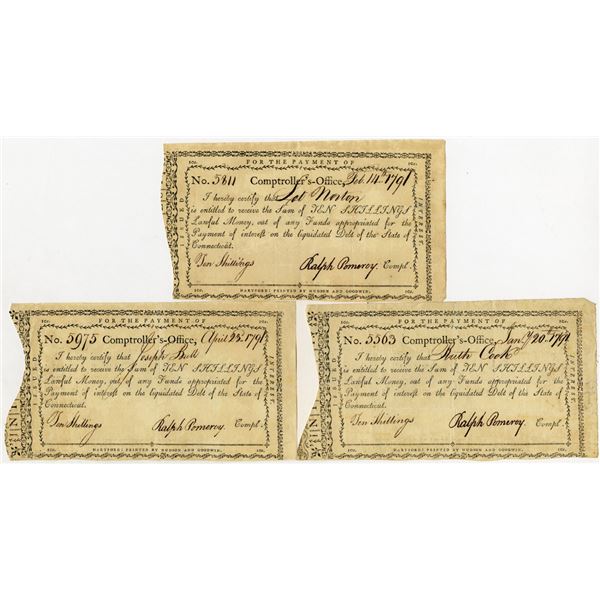 10s. 10s.
FOR THE PAYMENT OF
No. 5811 Comptroller's-Office, Feb. 14th 1791
I hereby certify that Lot Norton
is entitled to receive the Sum of TEN SHILLINGS
Lawful Money, out of any Funds appropriated for the
Payment of interest on the liquidated Debt of the State of
Connecticut.
Ten Shillings Ralph Pomeroy. Compt.
INTEREST.
HARTFORD: PRINTED BY HUDSON AND GOODWIN.
10s. 10s.
FOR THE PAYMENT OF
No. 5975 Comptroller's-Office, April 23d 1791
I hereby certify that Joseph Bull
is entitled to receive the Sum of TEN SHILLINGS
Lawful Money, out of any Funds appropriated for the
Payment of interest on the liquidated Debt of the State of
Connecticut.
Ten Shillings Ralph Pomeroy. Compt.
INTEREST.
HARTFORD: PRINTED BY HUDSON AND GOODWIN.
10s. 10s.
FOR THE PAYMENT OF
No. 5563 Comptroller's-Office, Jany 20th 1791
I hereby certify that Ruth Cook
is entitled to receive the Sum of TEN SHILLINGS
Lawful Money, out of any Funds appropriated for the
Payment of interest on the liquidated Debt of the State of
Connecticut.
Ten Shillings Ralph Pomeroy. Compt.
INTEREST.
HARTFORD: PRINTED BY HUDSON AND GOODWIN.